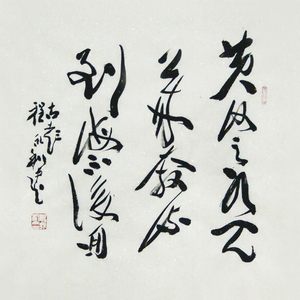 黄河之水天
上来奔流
到海不復回
古彭